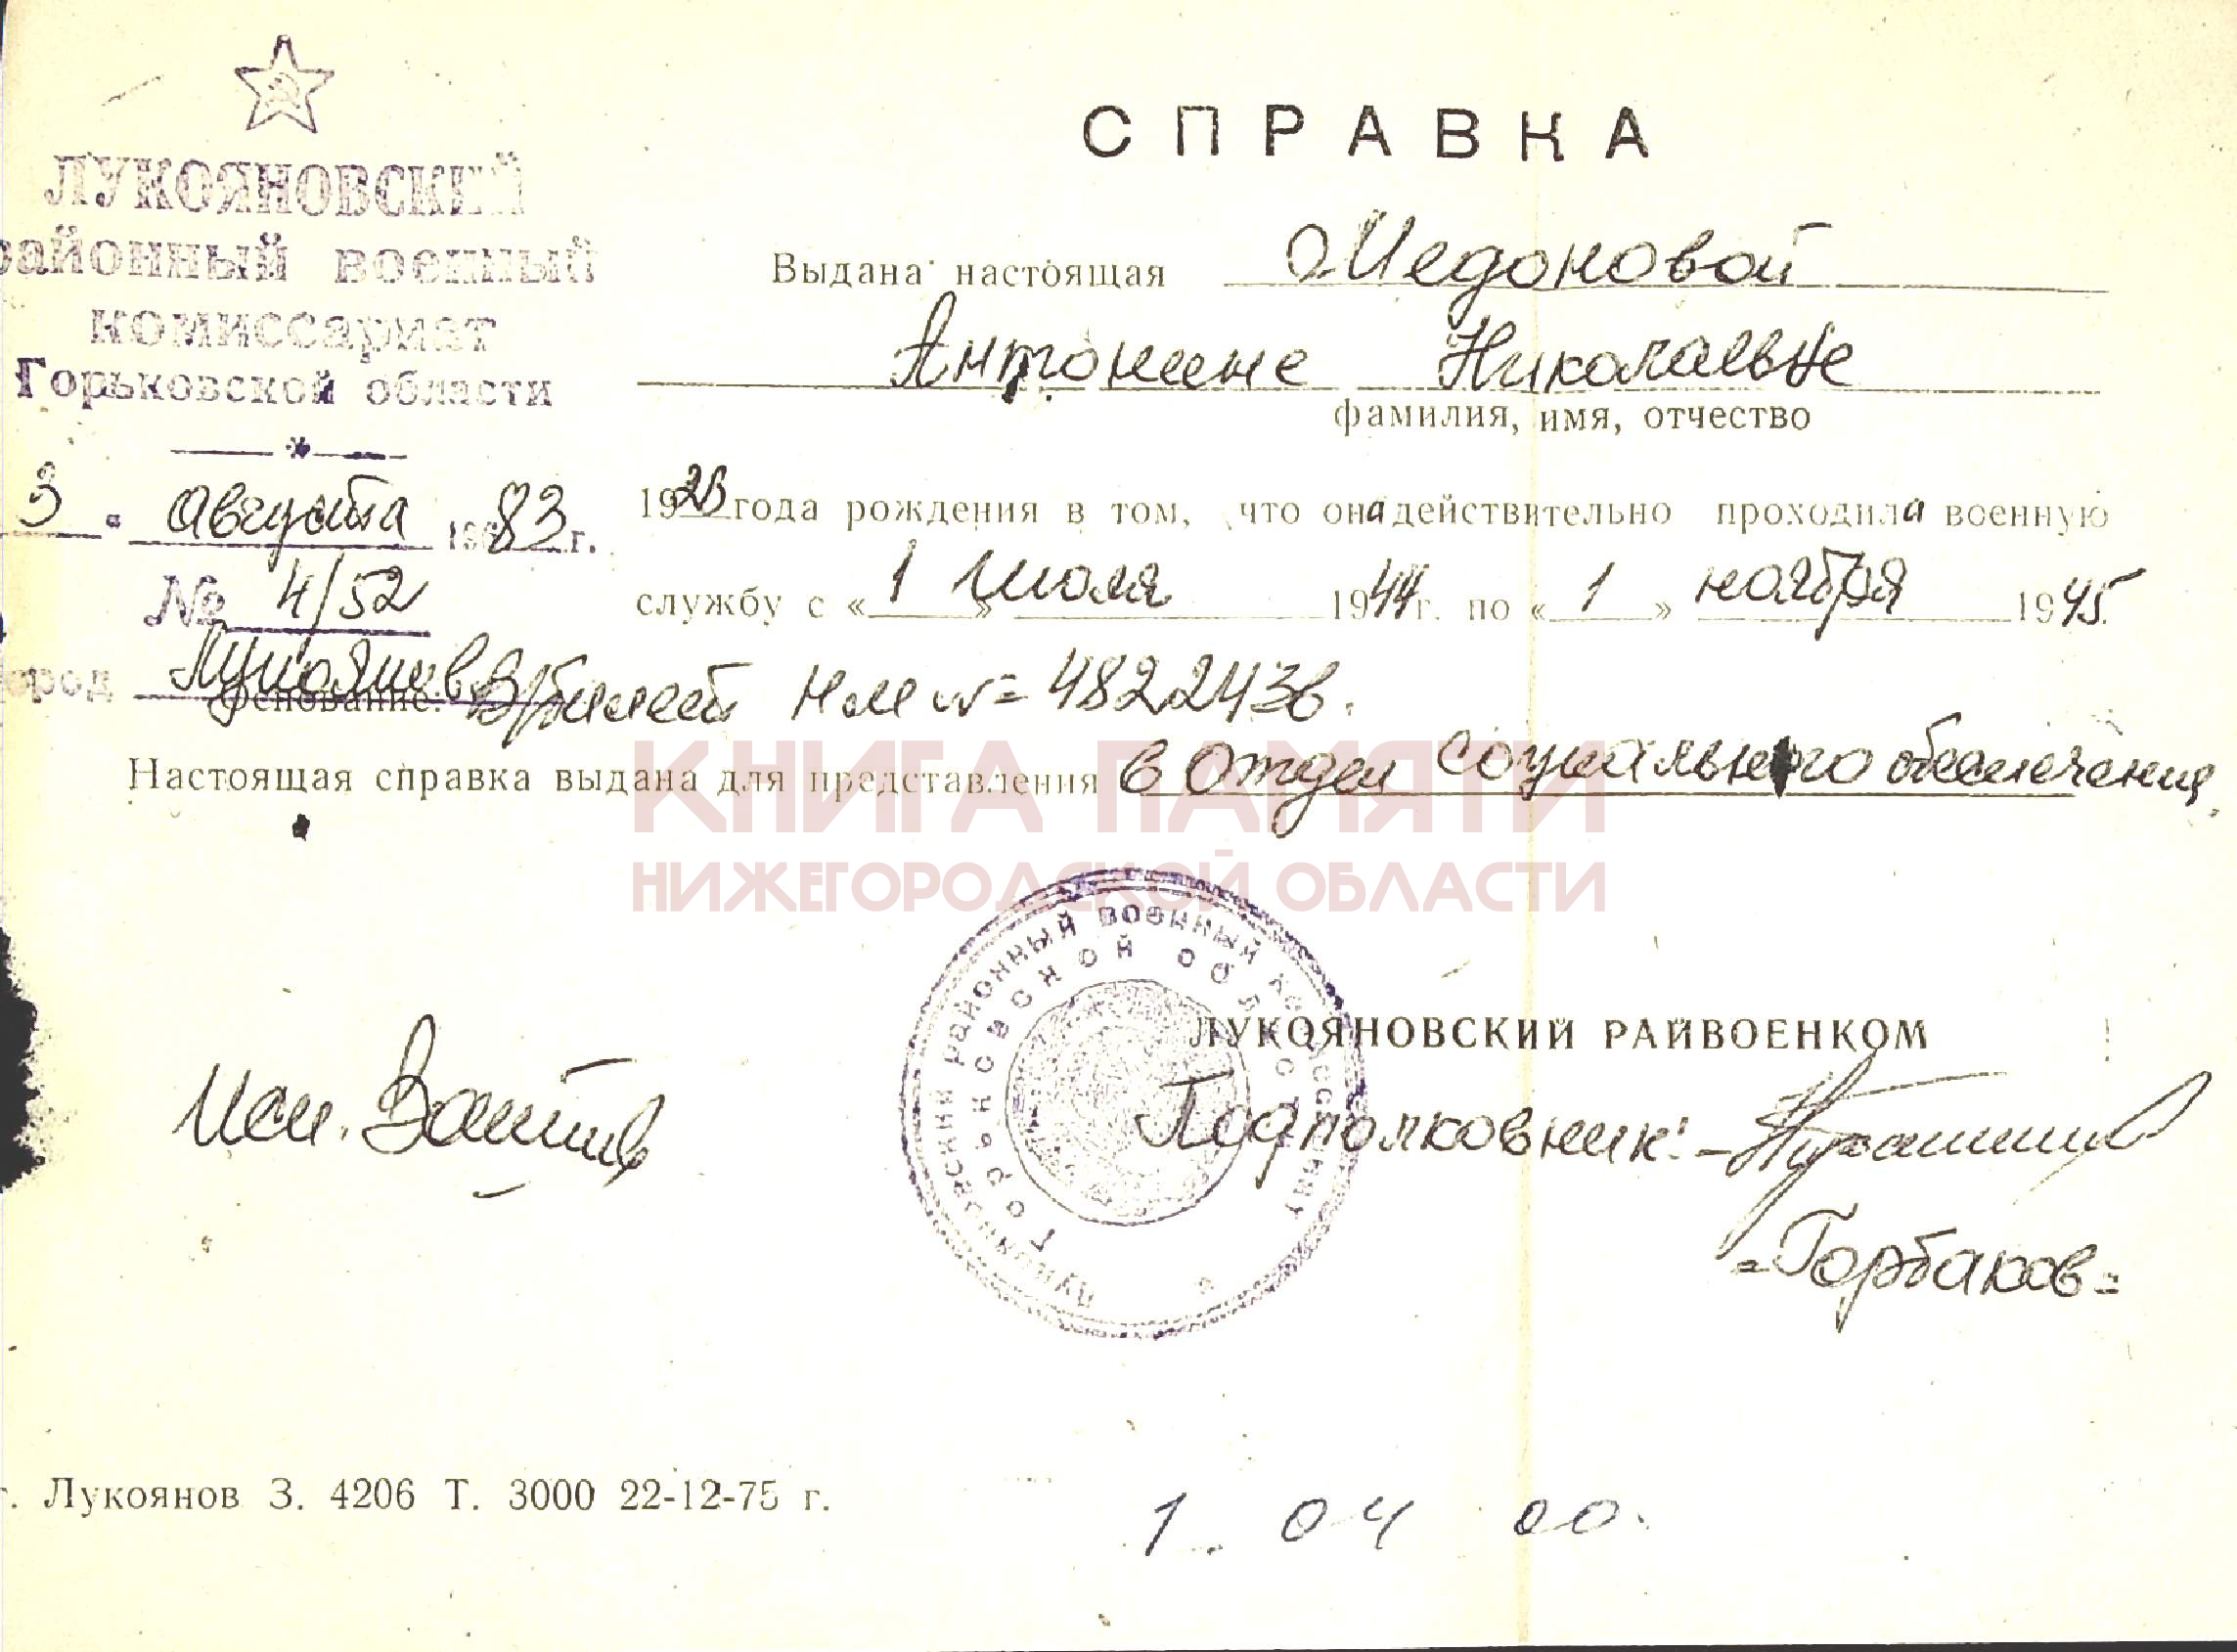 ЛУКОЯНОВСКИЙ
районный военный
комиссариат
Горьковской области
3 " августа 1983 г.
№ 4/52
город Лукоянов
СПРАВКА
Выдана настоящая Медоновой
Антонине Николаевне
фамилия, имя, отчество
1923 года рождения в том, что она действительно проходила военную
службу с « 1 » июля 1944 г. по « 1 » ноября 1945.
Основание: В/билет НМ № 4822436.
Настоящая справка выдана для представления в Отдел социального обеспечения
КНИГА ПАМЯТИ
НИЖЕГОРОДСКОЙ ОБЛАСТИ
Лукояновский районный военный комиссариат
Горьковской области
ЛУКОЯНОВСКИЙ РАЙВОЕНКОМ
Подполковник: -
=Горбаков=
исп.
г. Лукоянов З. 4206 Т. 3000 22-12-75 г.
1. 04 00.